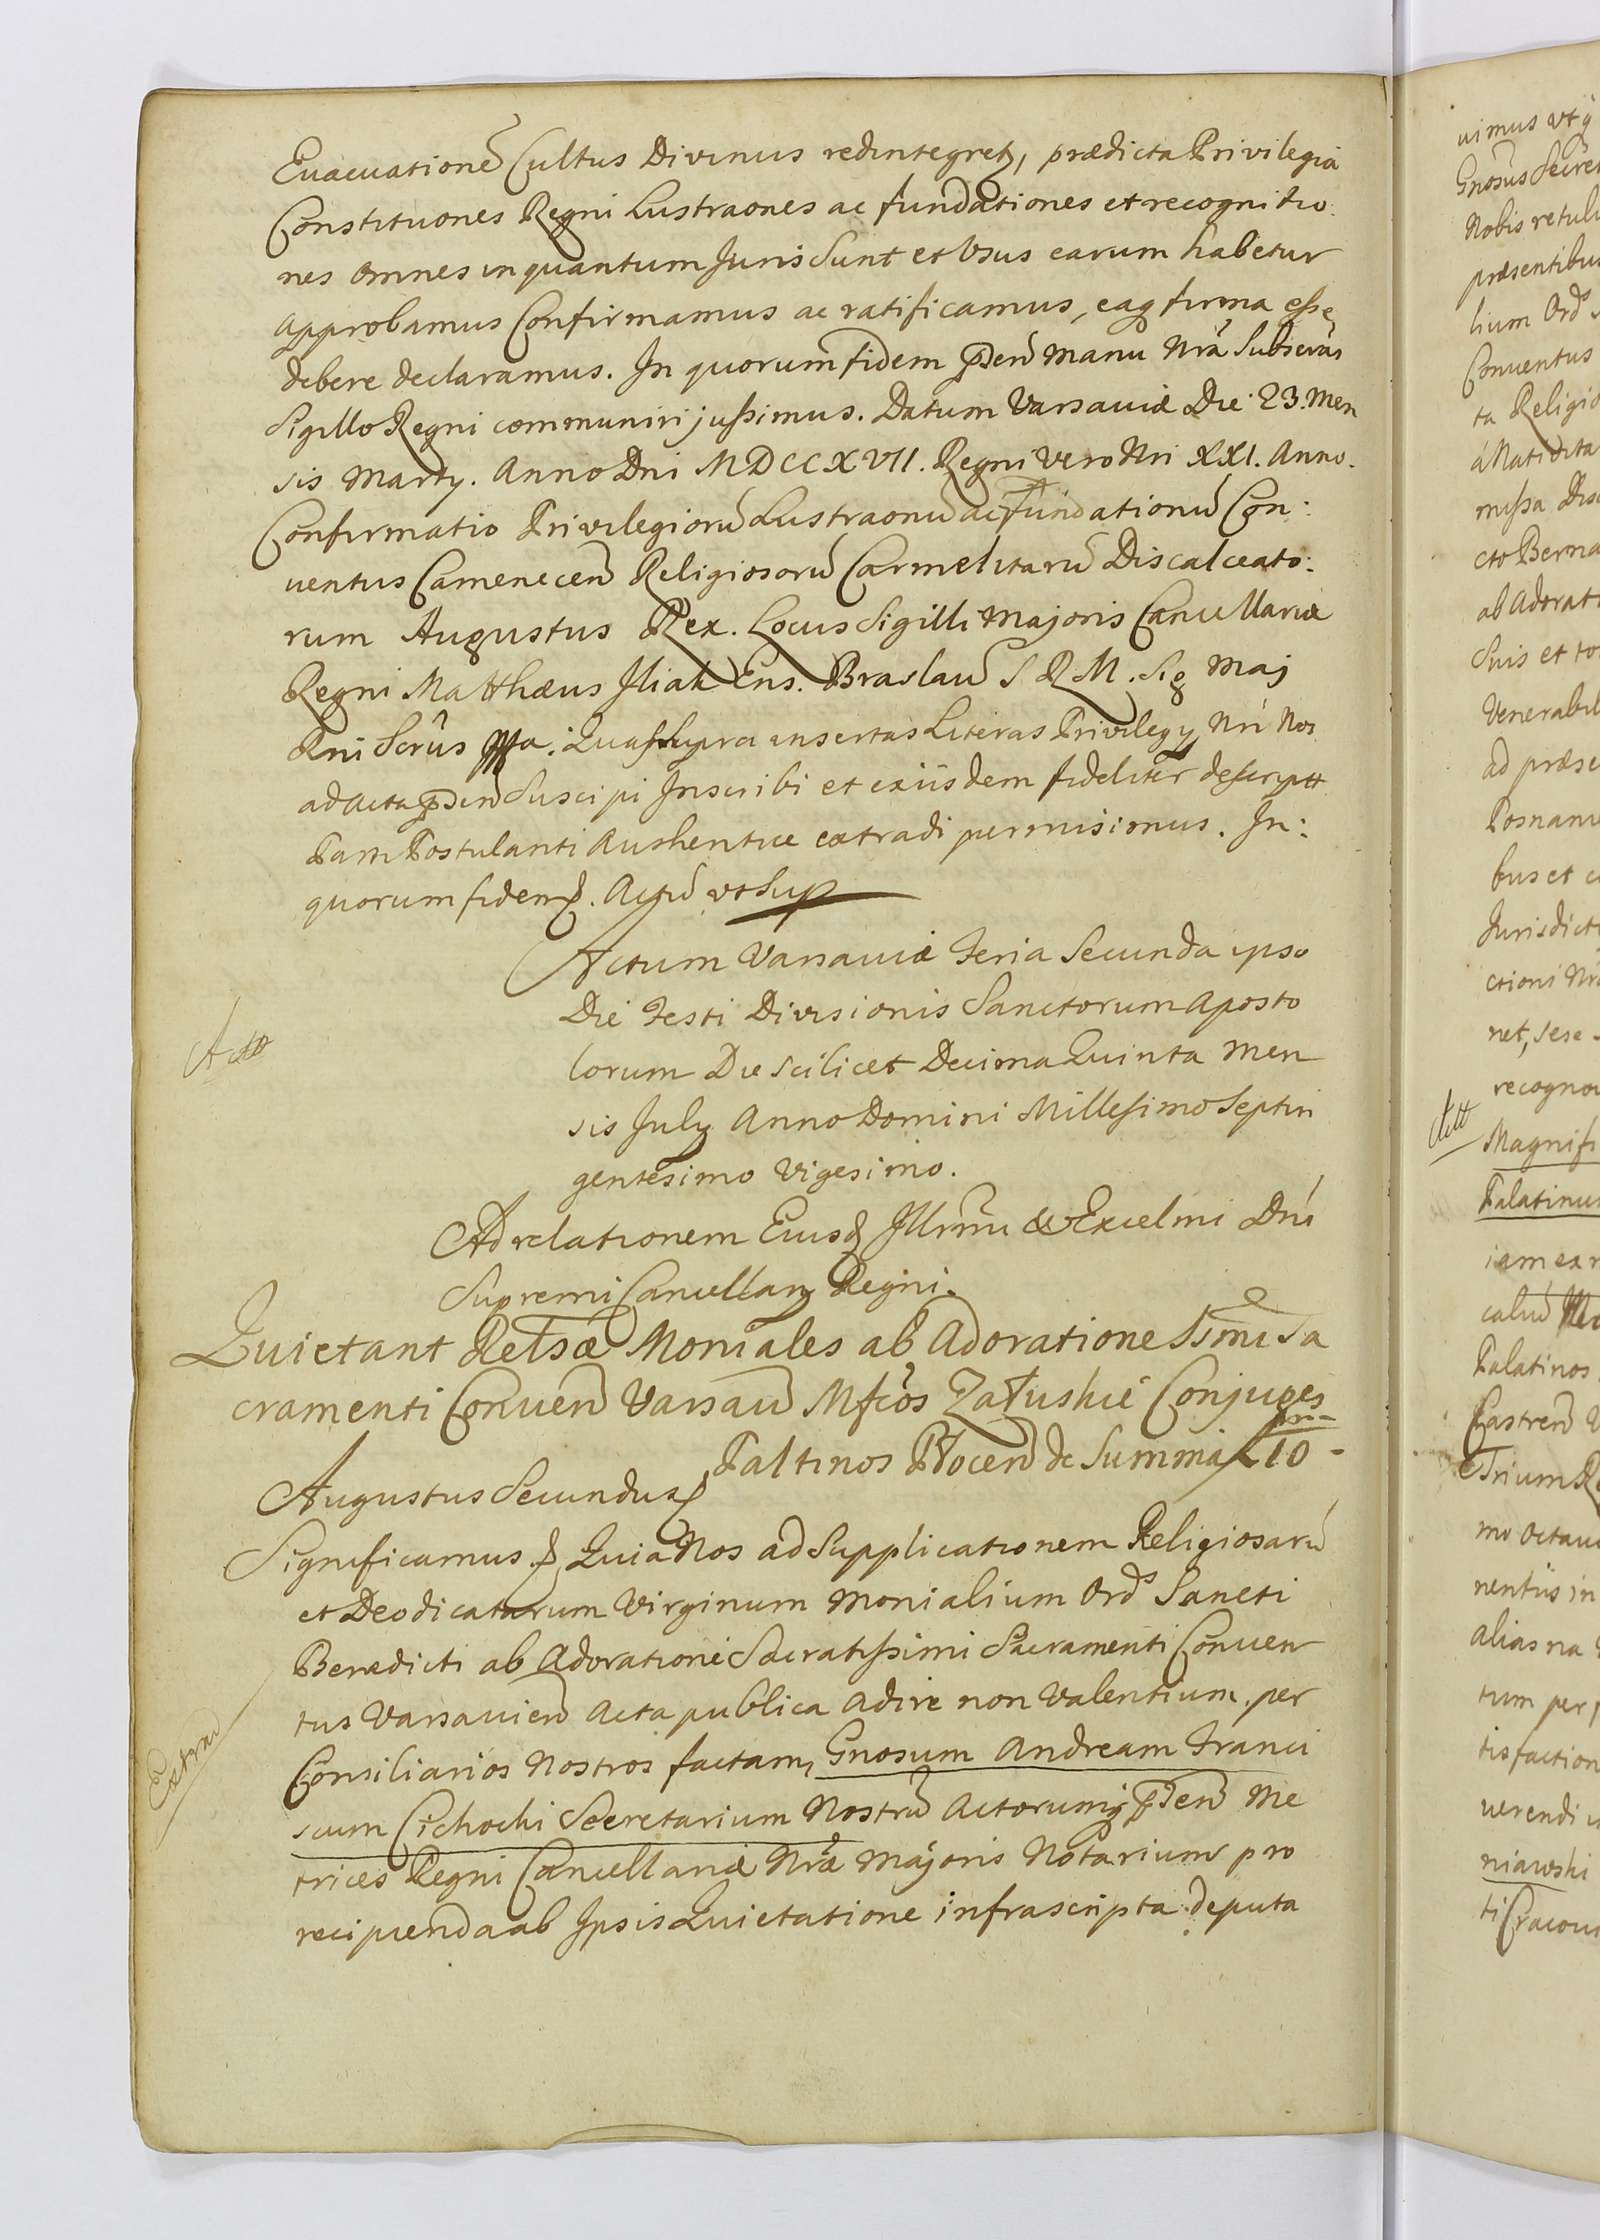 Euacuationē Cultus Divinus redintegretz, prædicta Privilegia
Constituones Regni Lustraones ac fundationes et recognitio:
nes omnes in quantum Juris Sunt et Usus earum habetur
Approbamus Confirmamus ac ratificamus, eaq firma eſse
debere declaramus. In quorum fidem p̄sen̄ manu Nrā Subscrās
Sigillo Regni communiri juſsimus. Datum Varsaviæ Die 23. Men
sis Marty. Anno Dni MDCCXVII. Regni Vero Nri XXI. Anno.
Confirmatio Privilegiorū Lustraonū ac fundationū Con:
uentus Camenecen̄ Religiosorū Carmelitarū Discalceato:
rum Augustus Rex. Locus Sigilli Majoris Cancellariæ
Regni Matthæus Iliak Ens. Braslau S R M. Sig Maj
Rni Scrūs
Quas Supra insertas Literas Privilegy Nri Nos
ad Acta p̄sen̄ Suscipi Inscribi et exiisdem fideliter descriptt
Parti Postulanti Authentice extradi permisimus. In:
quorum fidem. Actū ut Sup
Actum Varsaviæ Feria Secunda ipso
Die Festi Divisionis Sanctorum Aposto
lorum Die scilicet Decima Quinta Men
sis July Anno Domini Milleſimo Septin
gentesimo Vigesimo.
Actt
Ad relationem Eiusd Illrmi & Excelmi Dni
Supremi Cancellary Regni.
Quietant Relsæ Moniales ab Adoratione SSmi Sa
cramenti Conuen̄ Varsau̅ Mfcos Załuskie Conjuges
Paltinos Płocen̄ de Summa 10
Augustus Secundus
Significamus Quia Nos ad Supplicationem Religiosarū
et Deodicatarum Virginum Monialium Ords Sancti
Benedicti ab Adoratione Sacratiſsimi Sacramenti Conuen
tus Varsavien̄ Acta publica adire non Valentium per
Consiliarios Nostros factam, Gnosum Andream Franci
scum Cichocki Secretarium Nostrū Actorumq p̄sen̄ Me
trices Regni Cancellariæ Nræ Majoris Notarium pro
recipienda ab Ipsis Quietatione infrascripta deputa
Extrad
uimus utq
Gnosus Secret
Nobis retuli
præsentibus
lium Ords
Conuentus
ta Religio
a Natiuita
miſsa Dis
cto Berna
ab Adorat
Suis et to
Venerabil
ad præse
Posnani
bus et
Jurisdicti
ctioni Nr
net, sese
recognou
Actt
Magnifi
Palatinus
iam ex
Palatinos
Castren̄
Trium R
mo Octau
nentiis in
alias na
tum per
tisfaction
uerendi
niawski
ti Cracou